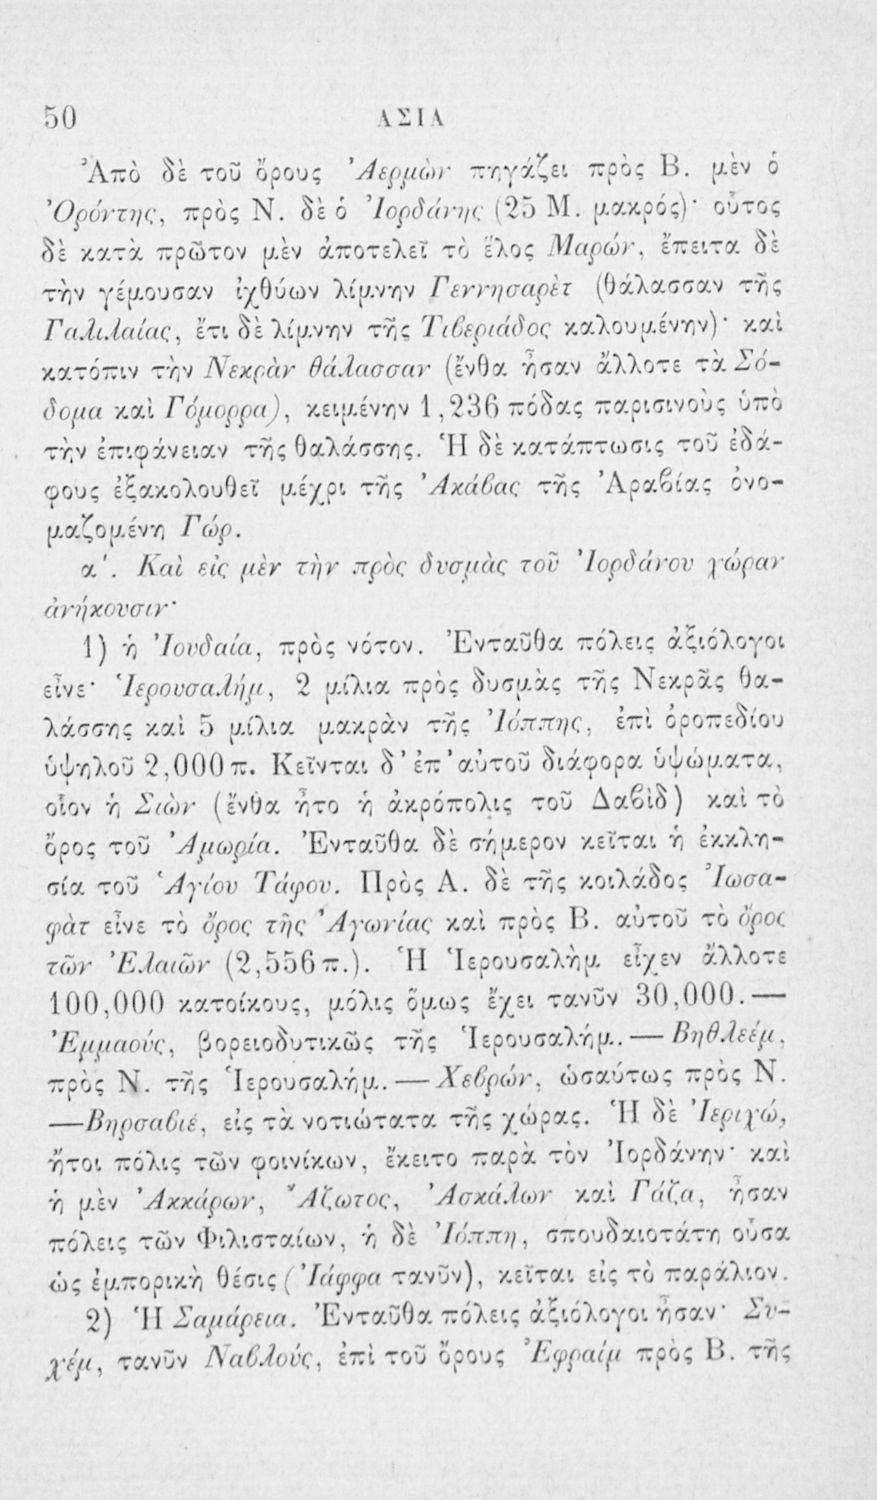 50 ΑΣΙΑ
Ἀπὸ δὲ τοῦ ὄρους Ἀερμὼν πηγάζει πρὸς Β. μὲν ὁ
Ὀρόντης, πρὸς Ν. δὲ ὁ Ἰορδάνης (25 Μ. μακρός)· οὗτος
δὲ κατὰ πρῶτον μὲν ἀποτελεῖ τὸ ἕλος Μαρών, ἔπειτα δὲ
τὴν γέμουσαν ἰχθύων λίμνην Γεννησαρὲτ (θάλασσαν τῆς
Γαλιλαίας, ἔτι δὲ λίμνην τῆς Τιβεριάδος καλουμένην)· καὶ
κατόπιν τὴν Νεκρὰν θάλασσαν (ἔνθα ἦσαν ἄλλοτε τὰ Σό-
δομα καὶ Γόμορρα), κειμένην 1,236 πόδας παρισινοὺς ὑπὸ
τὴν ἐπιφάνειαν τῆς θαλάσσης. Ἡ δὲ κατάπτωσις τοῦ ἐδά-
φους ἐξακολουθεῖ μέχρι τῆς Ἀκάβας τῆς Ἀραβίας ὀνο-
μαζομένη Γώρ.
α'. Καὶ εἰς μὲν τὴν πρὸς δυσμὰς τοῦ Ἰορδάνου χώραν
ἀνήκουσιν·
1) ἡ Ἰουδαία, πρὸς νότον. Ἐνταῦθα πόλεις ἀξιόλογοι
εἶνε· Ἱερουσαλήμ, 2 μίλια πρὸς δυσμὰς τῆς Νεκρᾶς θα-
λάσσης καὶ 5 μίλια μακρὰν τῆς Ἰόππης, ἐπὶ ὀροπεδίου
ὑψηλοῦ 2,000 π. Κεῖνται δ' ἐπ' αὐτοῦ διάφορα ὑψώματα,
οἷον ἡ Σιὼν (ἔνθα ἦτο ἡ ἀκρόπολις τοῦ Δαβὶδ) καὶ τὸ
ὄρος τοῦ Ἀμωρία. Ἐνταῦθα δὲ σήμερον κεῖται ἡ ἐκκλη-
σία τοῦ Ἁγίου Τάφου. Πρὸς Α. δὲ τῆς κοιλάδος Ἰωσα-
φὰτ εἶνε τὸ ὄρος τῆς Ἀγωνίας καὶ πρὸς Β. αὐτοῦ τὸ ὄρος
τῶν Ἐλαιῶν (2,556 π.). Ἡ Ἱερουσαλὴμ εἶχεν ἄλλοτε
100,000 κατοίκους, μόλις ὅμως ἔχει τανῦν 30,000.—
Ἐμμαούς, βορειοδυτικῶς τῆς Ἱερουσαλήμ.— Βηθλεέμ,
πρὸς Ν. τῆς Ἱερουσαλήμ.— Χεβρών, ὡσαύτως πρὸς Ν.
—Βηρσαβιέ, εἰς τὰ νοτιώτατα τῆς χώρας. Ἡ δὲ Ἱεριχώ,
ἤτοι πόλις τῶν φοινίκων, ἔκειτο παρὰ τὸν Ἰορδάνην· καὶ
ἡ μὲν Ἀκκάρων, Ἄζωτος, Ἀσκάλων καὶ Γάζα, ἦσαν
πόλεις τῶν Φιλισταίων, ἡ δὲ Ἰόππη, σπουδαιοτάτη οὖσα
ὡς ἐμπορικὴ θέσις (Ἰάφφα τανῦν), κεῖται εἰς τὸ παράλιον.
2) Ἡ Σαμάρεια. Ἐνταῦθα πόλεις ἀξιόλογοι ἦσαν· Συ-
χέμ, τανῦν Ναβλούς, ἐπὶ τοῦ ὄρους Ἐφραίμ πρὸς Β. τῆς